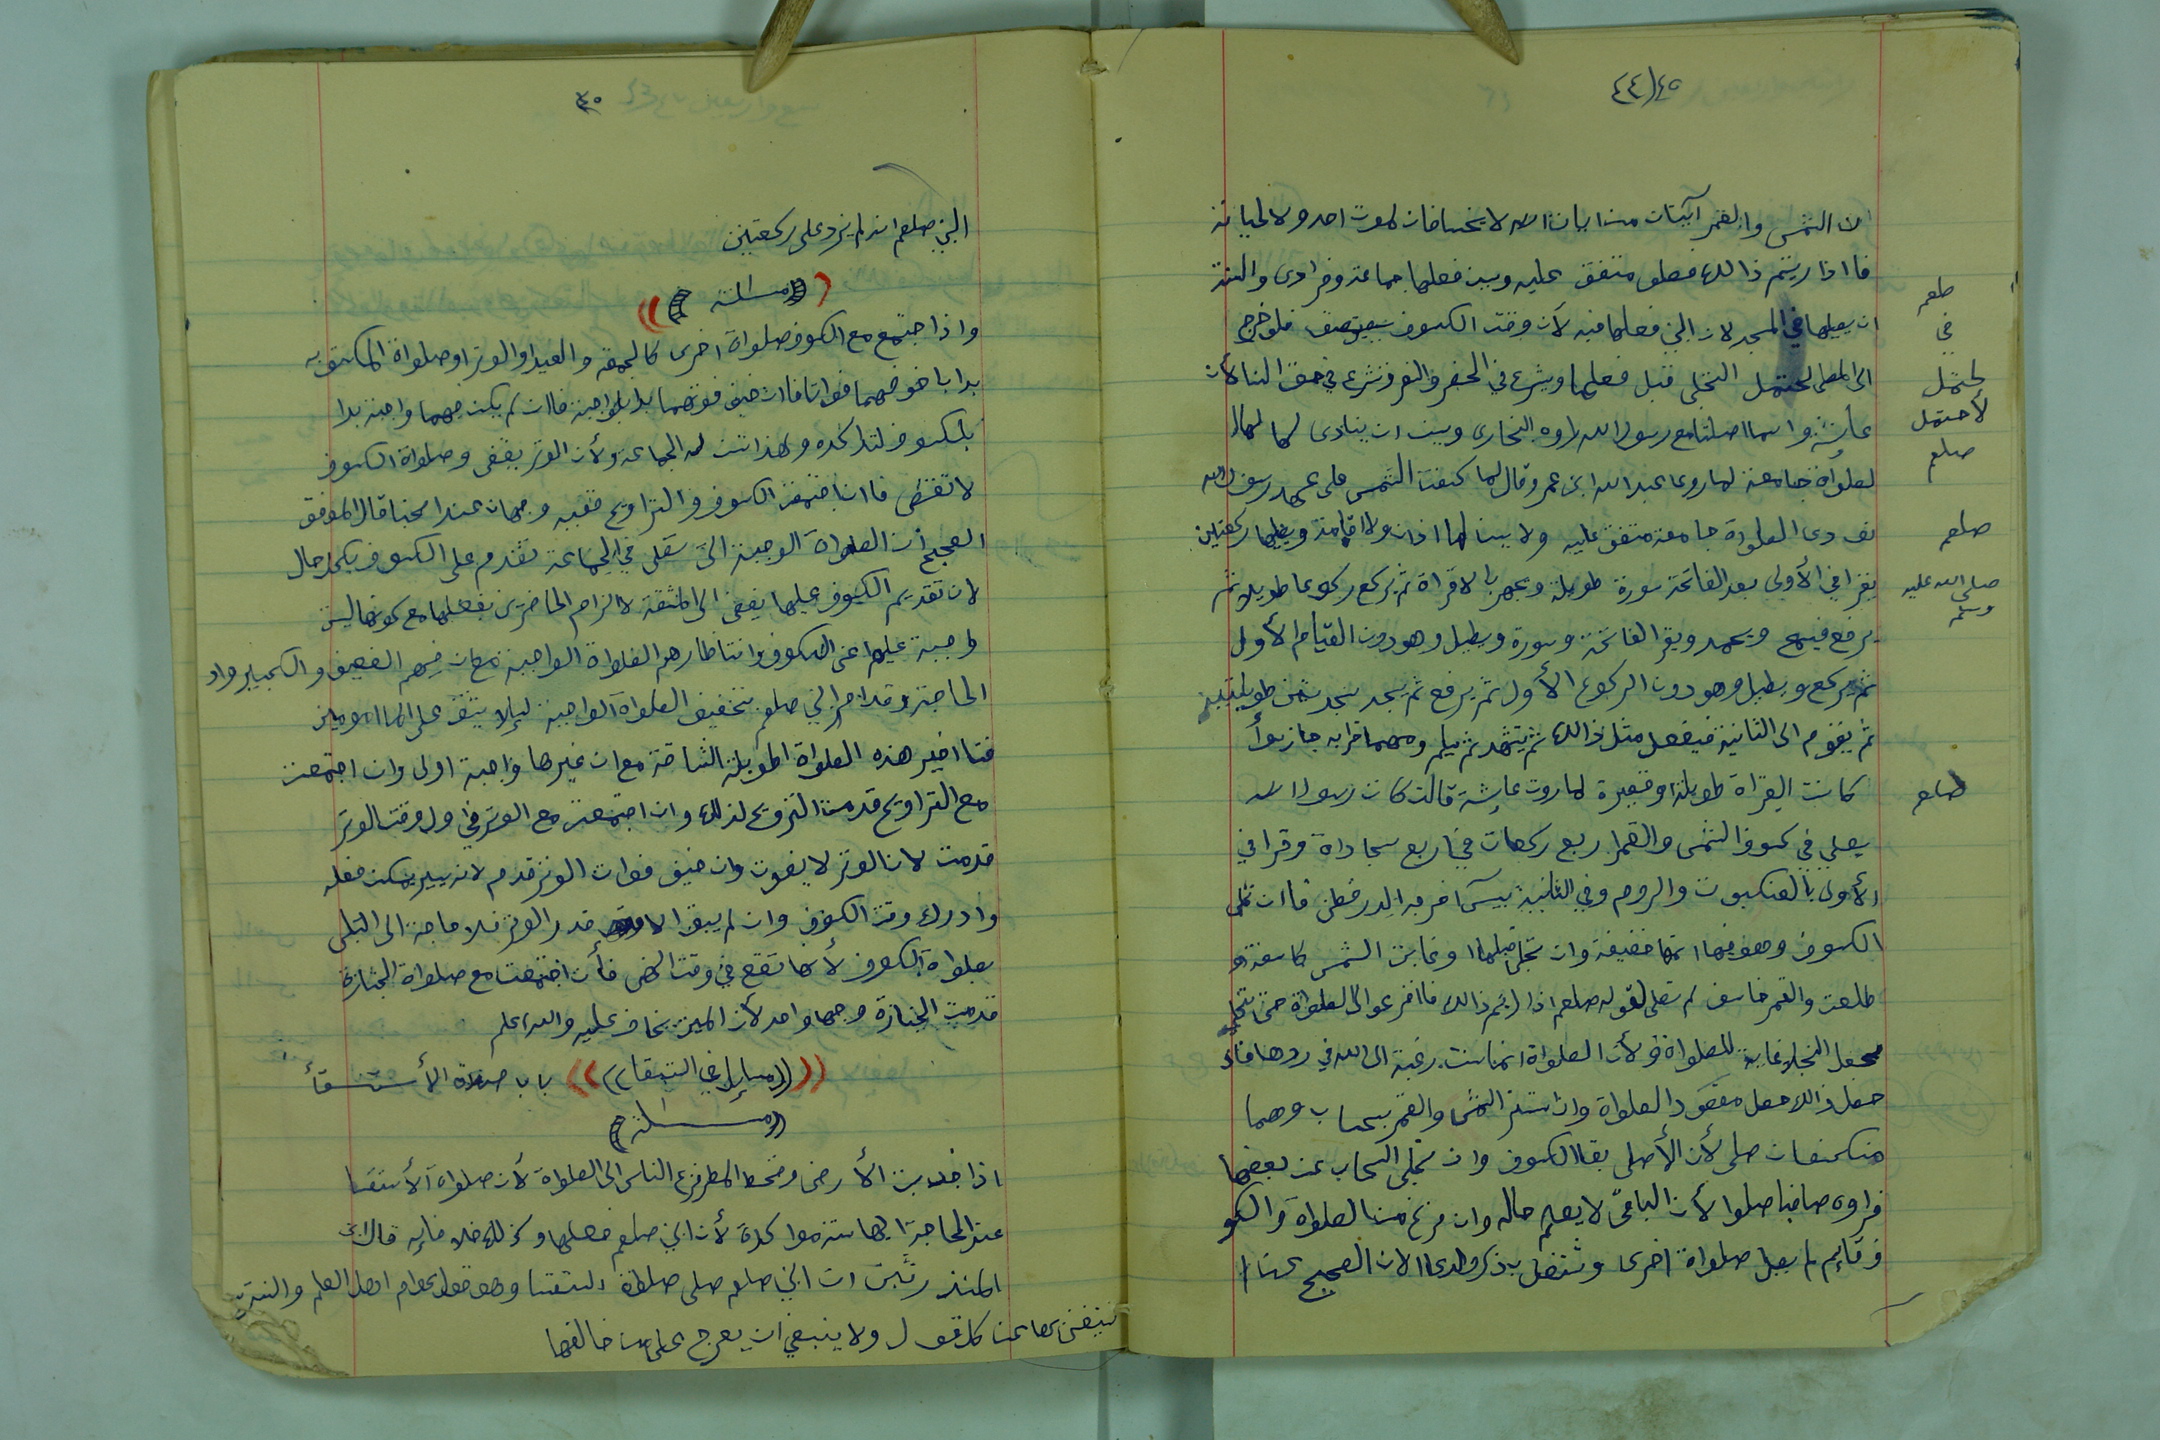 ٤٤/٤٥
لان الشمس والقمر آيتان من ايات الله لا يخسافان لموت احد ولا لحياته
فااذا ريتم ذالك فصلو متفق عليه وسن فعلها جماعة وفرادى والسنة
ان يصلها في المسجد لان النبي فعلها فيه لأن وقت الكسوف فلو خرج
الى المصلى لحتمل التجلى قبل فعلها ويشرع في الحضر والسفر وتشرع في حق النسا لأن
عائشة واسما صلتا مع رسول الله رواه البخارى وسن ان ينادى لها
لصلواة جامعة لما روى عبد الله ابن عمر وقال لما كسفت الشمس على عهد رسول الله
نودى الصلواة جامعة متفق عليه ولا يسن لها اذان ولا اقامة ويصليها ركعتين
يقرا في الأولى بعد الفاتحة سورة طويلة ويجهر بالاقراة ثم يركع ركوعا طويلا ثم
يرفع فيسمع ويحمد ويقرا الفاتحة وسورة ويطيل وهو دون القيام الأول
ثم يركع ويطيل وهو دون الركوع الأول ثم يرفع ثم يسجد سجدتين طويلتين
ثم يقوم الى الثانية فيفعل مثل ذالك ثم يتشهد ثم يسلم ومهما قرا به جاز سوأ
كانت القراة طويلة او قصيرة لما روت عايشة قالت كان رسول الله
يصلي في كسوف الشمس والقمر اربع ركعات في اربع سجاداة وقرا في
الأولى بالعنكبوت والروم وفي الثانية بيس اخرجه الدرقطن فاان تجلى
الكسوف وهو فيها اتمها خفيفة وان تجلى قبلها او غابت الشمس كاسفة او
طلعت والقمر خاسف لم تصلى لقوله صلعم اذا رايتم ذالك فاافزعوا الى الصلواة حتى تنجلي
فجعل التجلا غاية للصلواة ولأن الصلواة انما سنت رغبة الى الله في ردها فاذا
حصل ذالك حصل مقصود الصلواة وان استتر الشمس والقمر بسحاب وهما
منكسفان صلى لأن الأصلي بقا الكسوف وان تجلى السحاب عن بعضها
فراوه صافيا صلوا لأن الباقى لا يعلم حاله وان فرغ من الصلواة والكسو
ف قايم لم يصل صلواة اخرى وشتغل بذكر والدعا لان الصحيح عن ا
صلعم
في
لحتمل
لأحتمل
صلعم
صلعم
صلى الله عليه
وسلم
صلعم
٤٥
النبي صلعم انه لم يزد على ركعتين
((مسئلة))
واذا جتمع مع الكسوف صلواة اخرى كالجمعة والعيد او الوتر او صلواة المكتوبه
بدا باخوفهما فواتا فاان خيف فوتهما بدا بلواجبة فاان لم يكن فيهما واجبة بدا
بلكسوف لتاكده ولهذا تسن له الجماعة ولأن الوتر يقضى وصلواة الكسوف
لا تقضى فاان اجتمعت الكسوف والتراويح ففيه وجهان عند اصحبنا قال الموفق
الصحيح أن الصلواة الوجبة التى تصلى في الجماعة تقدم على الكسوف بكل حال
لان تقديم الكسوف عليها يفضى الى المشقة لالزام الحاضرين بفعلها مع كونها ليست
واجبة عليهم وانتاظارهم الصلواة الواجبة مع ان فيهم الضعيف والكبير وذو
الحاجة وقد امر النبي صلعم بتخفيف الصلواة الواجبة ليلا يشق على الماامومين
فتااخير هذه الصلواة الطويلة الشاقة مع ان غيرها واجبة اولى وان اجتمعت
مع التراويح قدمت التروايح لذلك وان اجتمعت مع الوتر في اول وقت الوتر
قدمت لان الوتر لا يفوت وان خيف فوات الوتر قدم لانه يسير يمكن فعله
وادرك وقت الكسوف وان لم يبق الا قدر الوتر فلا حاجة الى التبلس
بصلواة الكسوف لأنها تقع في وقت النهى فأن اجتمعت مع صلواة الجنازة
قدمت الجنازة وجها واحد لأن الميت يخاف عليه والله اعلم
((مسايل في استسقا)) باب صلاة الأستسقأ
((مسئلة))
اذا جدبت الأرض وقحط المطر فزع الناس الى الصلواة لأن صلواة الاستسقا
عند الحاجة اليها سنة مواكدة لأن النبي صلعم فعلها وكذلك خلافايه قال ابن
المنذر ثبت ان النبي صلعم صلى صلواة استسقا وهو قول عوام اهل العلم والسنة
تستغنى بها عن كل قول ولا ينبغي ان يعرج على من خالفها